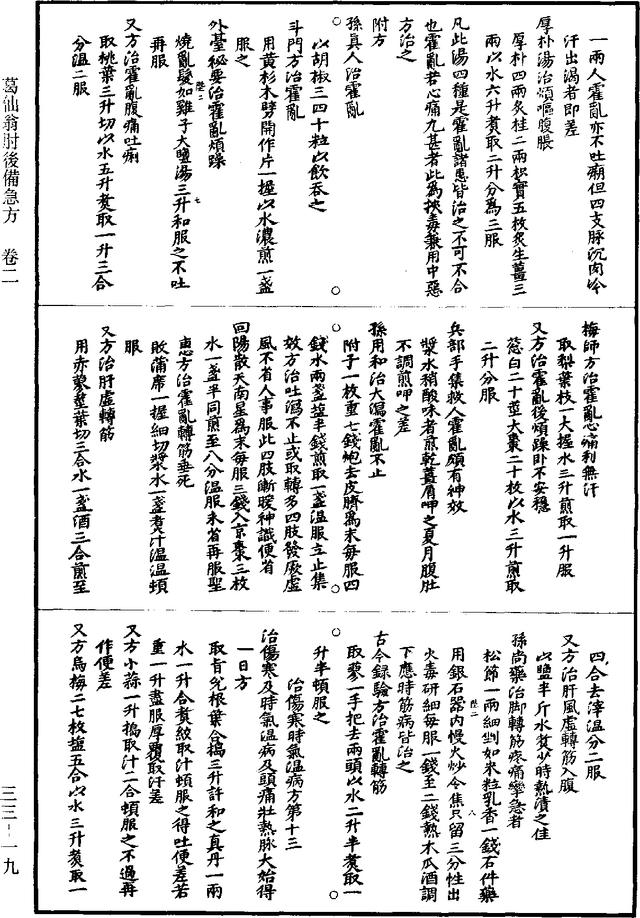 一兩人霍亂亦不吐痢但四支脉沉肉冷
汗出渴者即差
厚朴湯治煩嘔腹脹
厚朴四兩炙桂二兩枳實五枚炙生薑三
兩以水六升煑取二升分爲三服
凡此湯四種是霍亂諸患皆治之不可不合
也霍亂若心痛尤甚者此爲挾毒兼用中惡
方治之
附方
孫真人治霍亂
以胡椒三四十粒以飲吞之
斗門方治霍亂
用黄杉木劈開作片一握以水濃煎一盞
服之
外臺秘要治霍亂煩躁
燒亂髮如雞子大鹽湯三升和服之不吐
再服
又方治霍亂腹痛吐痢
取桃葉三升切以水五升煑取一升三合
分温二服
梅師方治霍亂心痛利無汗
取梨葉枝一大握水三升煎取一升服
又方治霍亂後煩躁卧不安穩
葱白二十莖大棗二十枚以水三升煎取
二升分服
兵部手集救人霍亂頗有神效
漿水稍酸味者煎乾薑屑呷之夏月腹肚
不調煎呷之差
孫用和治大瀉霍亂不止
附子一枚重七錢炮去皮臍爲末每服四
錢水兩盞鹽半錢煎取一盞温服立止集
效方治吐瀉不止或取轉多四肢發厥虛
風不省人事服此四肢漸暖神識便省
回陽散天南星爲末每服三錢入京棗三枚
水一盞半同煎至八分温服未省再服聖
惠方治霍亂轉筋垂死
敗蒲席一握細切漿水一盞煑汁温温頓
服
又方治肝虛轉筋
用赤蓼莖葉切三合水一盞酒三合煎至
四合去滓温分二服
又方治肝風虛轉筋入腹
以鹽半斤水煑少時熱漬之佳
孫尚藥治脚轉筋疼痛攣急者
松節一兩細剉如米粒乳香一錢右件藥
用銀石器内慢火炒令焦只留三分性出
火毒研細每服一錢至二錢熱木瓜酒調
下應時筋病皆治之
古今録驗方治霍亂轉筋
取蓼一手把去兩頭以水二升半煑取一
升半頓服之
治傷寒時氣温病方第十三
治傷寒及時氣温病及頭痛壯熱脉大始得
一日方
取旨兊根葉合搗三升許和之真丹一兩
水一升合煑絞取汁頓服之得吐便差若
重一升盡服厚覆取汗差
又方小蒜一升搗取汁三合頓服之不過再
作便差
又方烏梅二七枚鹽五合以水三升煑取一
葛仙翁肘後備急方 卷二
三三-一九